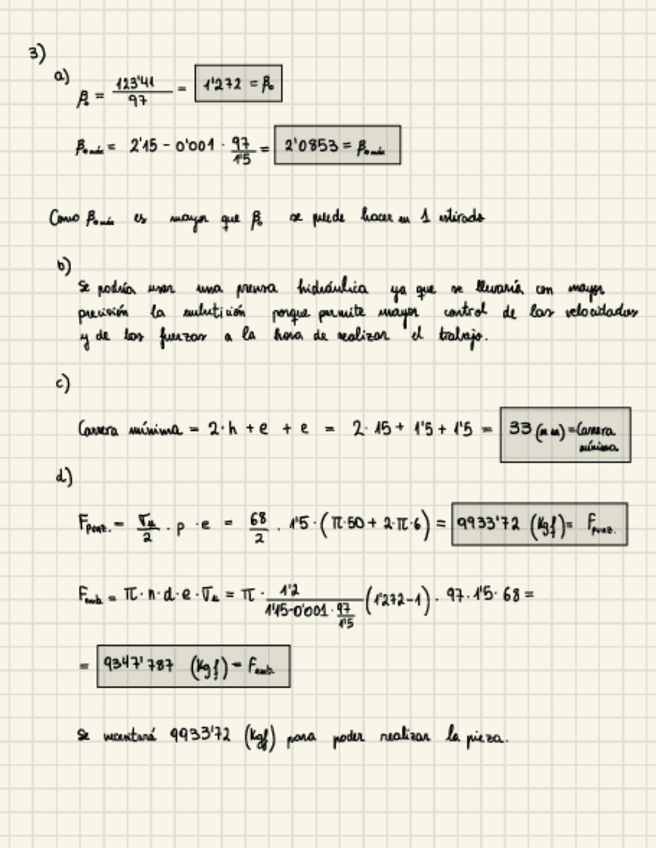 3)
a) β₀ = 123'41 / 97 = 1'272 = β₀
β₀ₘáₓ = 2'15 - 0'001 · 97/1'5 = 2'0853 = β₀ₘáₓ
Como β₀ₘáₓ es mayor que β₀ se puede hacer en 1 estirado
b)
Se podría usar una prensa hidráulica ya que se llevaría con mayor
precisión la embutición porque permite mayor control de las velocidades
y de las fuerzas a la hora de realizar el trabajo.
c)
Carrera mínima = 2·h + e + e = 2· 15 + 1'5 + 1'5 = 33 (mm) = Carrera mínima
d)
F punz. = σᵤ/2 · p · e = 68/2 · 1'5 · (π·50 + 2·π·6) = 9933'72 (Kgf) = F punz.
F emb. = π · n · d · e · σᵤ = π · 1'2 / (1'15-0'001 · 97/1'5) (1'272-1) · 97 · 1'5 · 68 =
= 9347'787 (Kgf) = F emb.
Se necesitará 9933'72 (Kgf) para poder realizar la pieza.